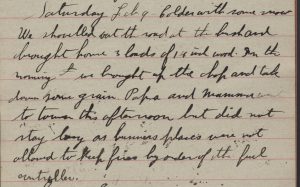 Saturday Feb 9 Colder with some snow
We shovelled out the road at the bush and
brought home 3 loads of 14 inch wood. In the
morning I brought up the chop and take
down some grain Papa and Mamma
to town this afternoon but did not
stay long as business places were not
allowed to keep fires by order of the fuel
controller.